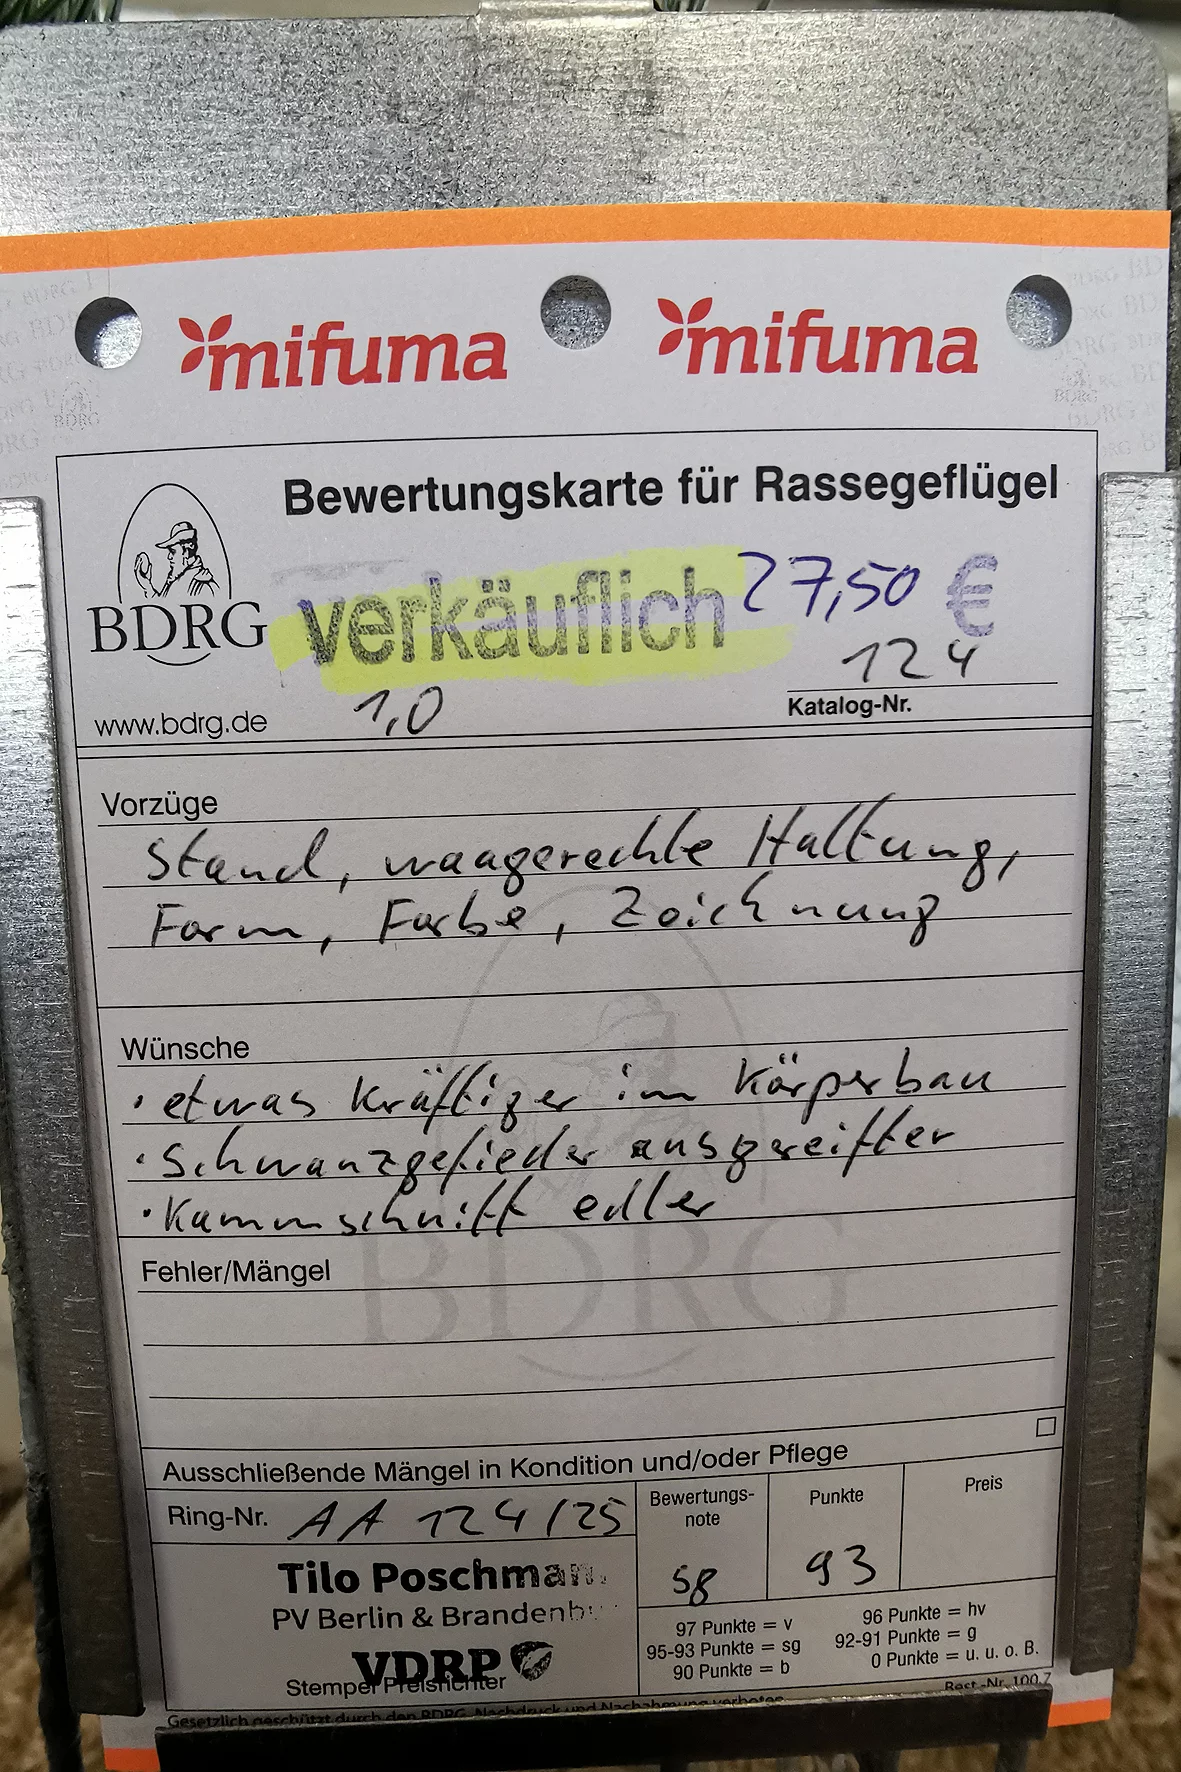 mifuma mifuma
Bewertungskarte für Rassegeflügel
BDRG
verkäuflich 27,50 €
124
www.bdrg.de 1,0 Katalog-Nr.
Vorzüge
Stand, waagerechte Haltung,
Form, Farbe, Zeichnung
Wünsche
• etwas kräftiger im Körperbau
• Schwanzgefieder ausgereifter
• Kammschnitt edler
Fehler/Mängel
BDRG
Ausschließende Mängel in Kondition und/oder Pflege
Ring-Nr. AA 124/25
Bewertungs-
note
sg
Punkte
93
Preis
Tilo Poschmann
PV Berlin & Brandenbu
VDRP
Stempel Preisrichter
97 Punkte = v 96 Punkte = hv
95-93 Punkte = sg 92-91 Punkte = g
90 Punkte = b 0 Punkte = u. u. o. B.
Best.-Nr. 100.7
Gesetzlich geschützt durch den BDRG. Nachdruck und Nachahmung verboten